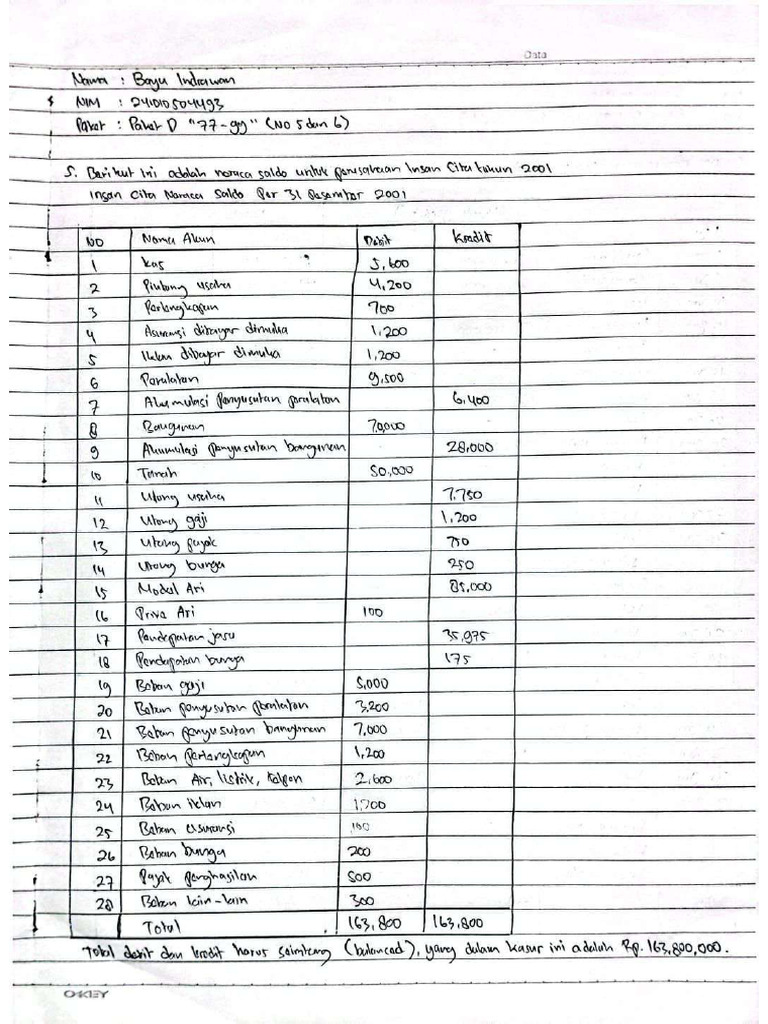 Data
Nama : Bayu Indrawan
NIM : 241010504493
Paket : Paket D "77-99" (No 5 dan 6)
5. Berikut ini adalah neraca saldo untuk perusahaan Insan Cita tahun 2001
Insan Cita Neraca Saldo Per 31 Desember 2001
NO Nama Akun Debit Kredit
1 Kas 5,600
2 Piutang usaha 4,200
3 Perlengkapan 700
4 Asuransi dibayar dimuka 1,200
5 Iklan dibayar dimuka 1,200
6 Peralatan 9,500
7 Akumulasi penyusutan peralatan 6,400
8 Bangunan 70,000
9 Akumulasi penyusutan bangunan 28,000
10 Tanah 50,000
11 Utang usaha 7.750
12 Utang gaji 1,200
13 Utang pajak 750
14 Utang bunga 250
15 Modal Ari 85,000
16 Prive Ari 100
17 Pendapatan jasa 35,975
18 Pendapatan bunga 175
19 Beban gaji 5,000
20 Beban penyusutan peralatan 3,200
21 Beban penyusutan bangunan 7,000
22 Beban perlengkapan 1,200
23 Beban Air, listrik, telpon 2,600
24 Beban iklan
25 Beban asuransi 100
26 Beban bunga 200
27 Pajak penghasilan 500
28 Beban lain-lain 300
Total 163,800 163,800
Total debit dan kredit harus seimbang (balanced), yang dalam kasus ini adalah Rp. 163,800,000.
OKEY